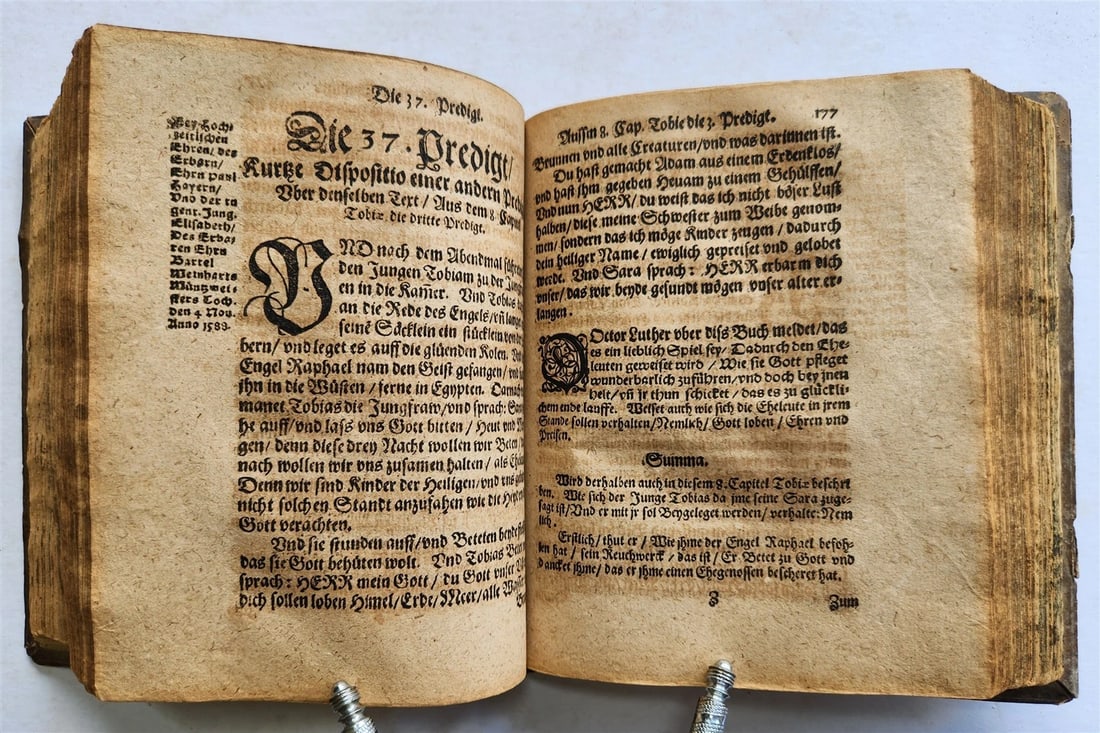 Die 37. Predigt.
Bey Hoch-
zeitlichen
Ehren / des
Erbarn /
Ehrn Paul
Bayern /
Vnd der tu
gent. Jung.
Elisabeth /
Des Erba-
ren Ehrn
Bartel
Weinharts
Müntzmei-
sters Toch.
den 4 Nou.
Anno 1588.
Die 37. Predigt /
Kurtze Dispositio einer andern
Vber denselben Text / Aus dem 8.
Tobiæ, die dritte Predigt.
VND nach dem Abendmal
den Jungen Tobiam zu der
en in die Kam̃er. Vnd Tobias
an die Rede des Engels / vñ
seinē Säcklein ein stücklein von
bern / vnd leget es auff die glüenden Kolen.
Engel Raphael nam den Geist gefangen /
jhn in die Wüsten / ferne in Egypten.
manet Tobias die Jungfraw / vnd sprach:
he auff / vnd lass vns Gott bitten / Heut vnd
gen / denn diese drey Nacht wollen wir Beten
nach wollen wir vns zusamen halten / als
Denn wir sind Kinder der Heiligen / vnd vns
nicht solchen Standt anzufahen wie die
Gott verachten.
Vnd sie stunden auff / vnd Beteten beyde
das sie Gott behüten wolt. Vnd Tobias
sprach: HERR mein Gott / du Gott vnser
dich sollen loben Himel / Erde / Meer / alle
Aussm 8. Cap. Tobie die 3. Predigt. 177
Brunnen vnd alle Creaturen / vnd was darinnen ist.
Du hast gemacht Adam aus einem Erdenklos /
vnd hast jhm gegeben Heuam zu einem Gehülffen /
Vnd nun HERR / du weist das ich nicht böser Lust
halben / diese meine Schwester zum Weibe genom-
men / sondern das ich möge Kinder zeugen / dadurch
dein heiliger Name / ewiglich gepreiset vnd gelobet
werde. Vnd Sara sprach: HERR erbarm dich
vnser / das wir beyde gesundt mögen vnser alter er-
langen.
DOctor Luther vber diss Buch meldet / das
es ein lieblich Spiel sey / Dadurch den Ehe-
leuten geweiset wird / Wie sie Gott pfleget
wunderbarlich zuführen / vnd doch bey jnen
helt / vñ jr thun schicket / das es zu glückli-
chem ende lauffe. Weiset auch wie sich die Eheleute in jrem
Stande sollen verhalten / Nemlich / Gott loben / Ehren vnd
Preisen.
Summa.
Wird derhalben auch in diesem 8. Capitel Tobiæ beschri
ben. Wie sich der Junge Tobias da jme seine Sara zuge-
sagt ist / Vnd er mit jr sol Beygeleget werden / verhalte: Nem
lich.
Erstlich / thut er / Wie jhme der Engel Raphael befoh-
len hat / sein Reuchwerck / das ist / Er Betet zu Gott vnd
dancket jhme / das er jhme einen Ehegenossen bescheret hat.
Z Zum